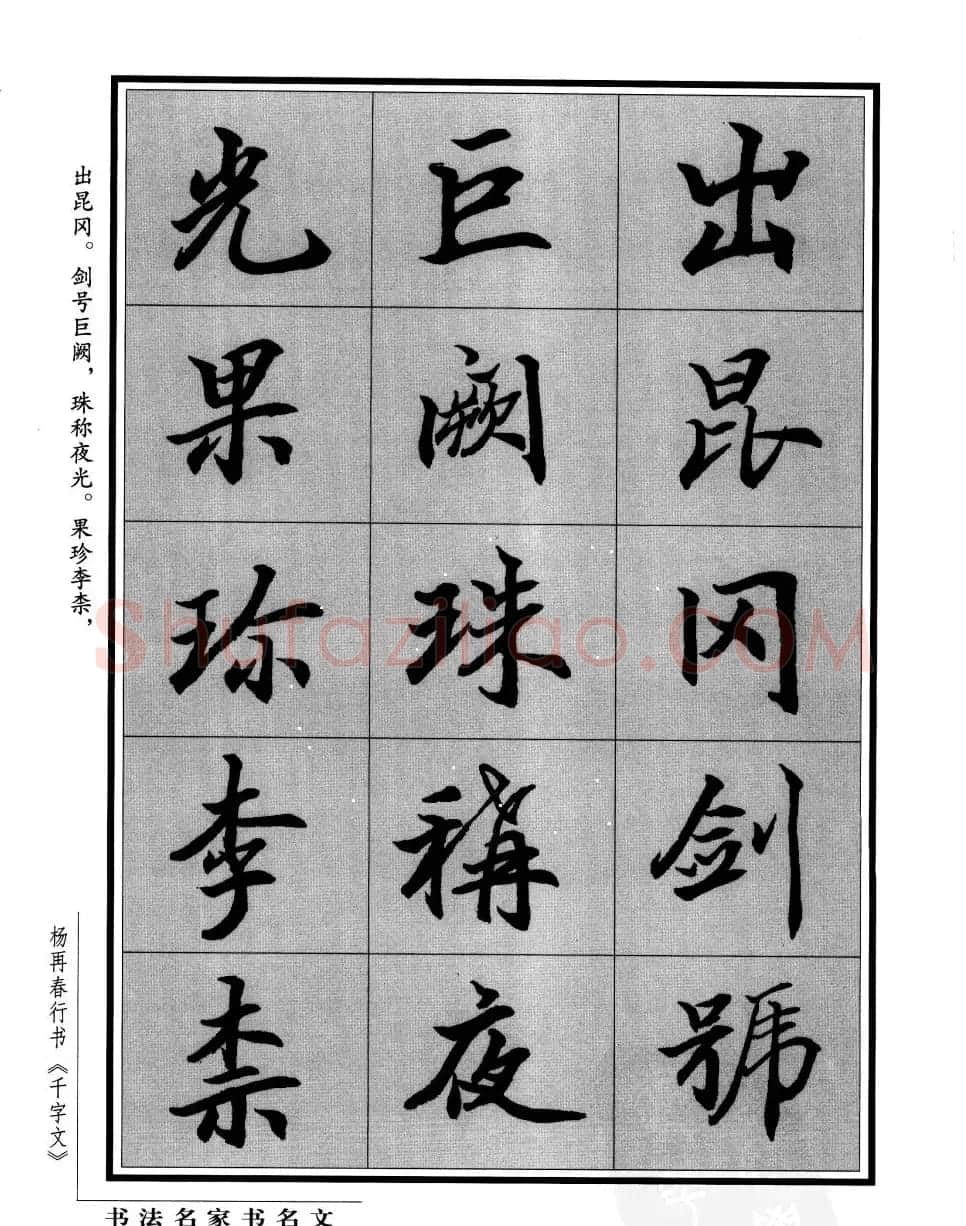 出昆冈剑號
巨阙珠稱夜
光果珍李柰
出昆冈。剑号巨阙，珠称夜光。果珍李柰，
杨再春行书《千字文》
书法名家书名文
Shufaziliao.COM